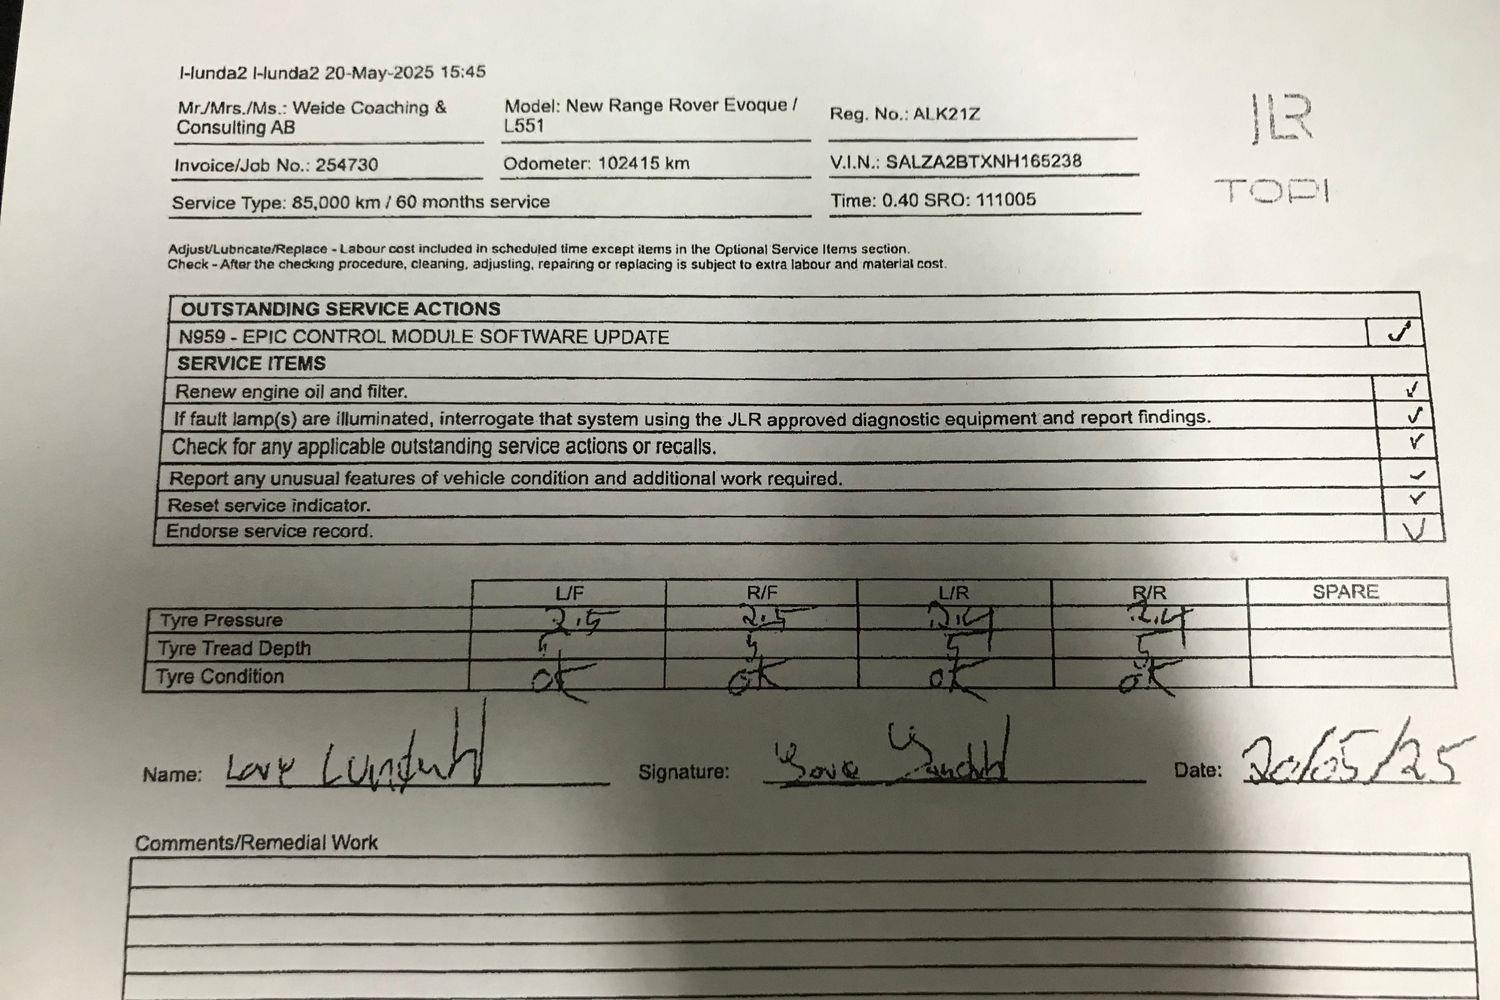 l-lunda2 l-lunda2 20-May-2025 15:45
Mr./Mrs./Ms.: Weide Coaching &
Consulting AB
Model: New Range Rover Evoque /
L551
Reg. No.: ALK21Z
JLR
TOPI
Invoice/Job No.: 254730
Odometer: 102415 km
V.I.N.: SALZA2BTXNH165238
Service Type: 85,000 km / 60 months service
Time: 0.40 SRO: 111005
Adjust/Lubricate/Replace - Labour cost included in scheduled time except items in the Optional Service Items section.
Check - After the checking procedure, cleaning, adjusting, repairing or replacing is subject to extra labour and material cost.
OUTSTANDING SERVICE ACTIONS
N959 - EPIC CONTROL MODULE SOFTWARE UPDATE
SERVICE ITEMS
Renew engine oil and filter.
If fault lamp(s) are illuminated, interrogate that system using the JLR approved diagnostic equipment and report findings.
Check for any applicable outstanding service actions or recalls.
Report any unusual features of vehicle condition and additional work required.
Reset service indicator.
Endorse service record.
L/F R/F L/R R/R SPARE
Tyre Pressure 2.5 2.5 2.4 2.4
Tyre Tread Depth 5 5 5 5
Tyre Condition ok ok ok ok
Name: Love Signature: Date: 20/05/25
Comments/Remedial Work